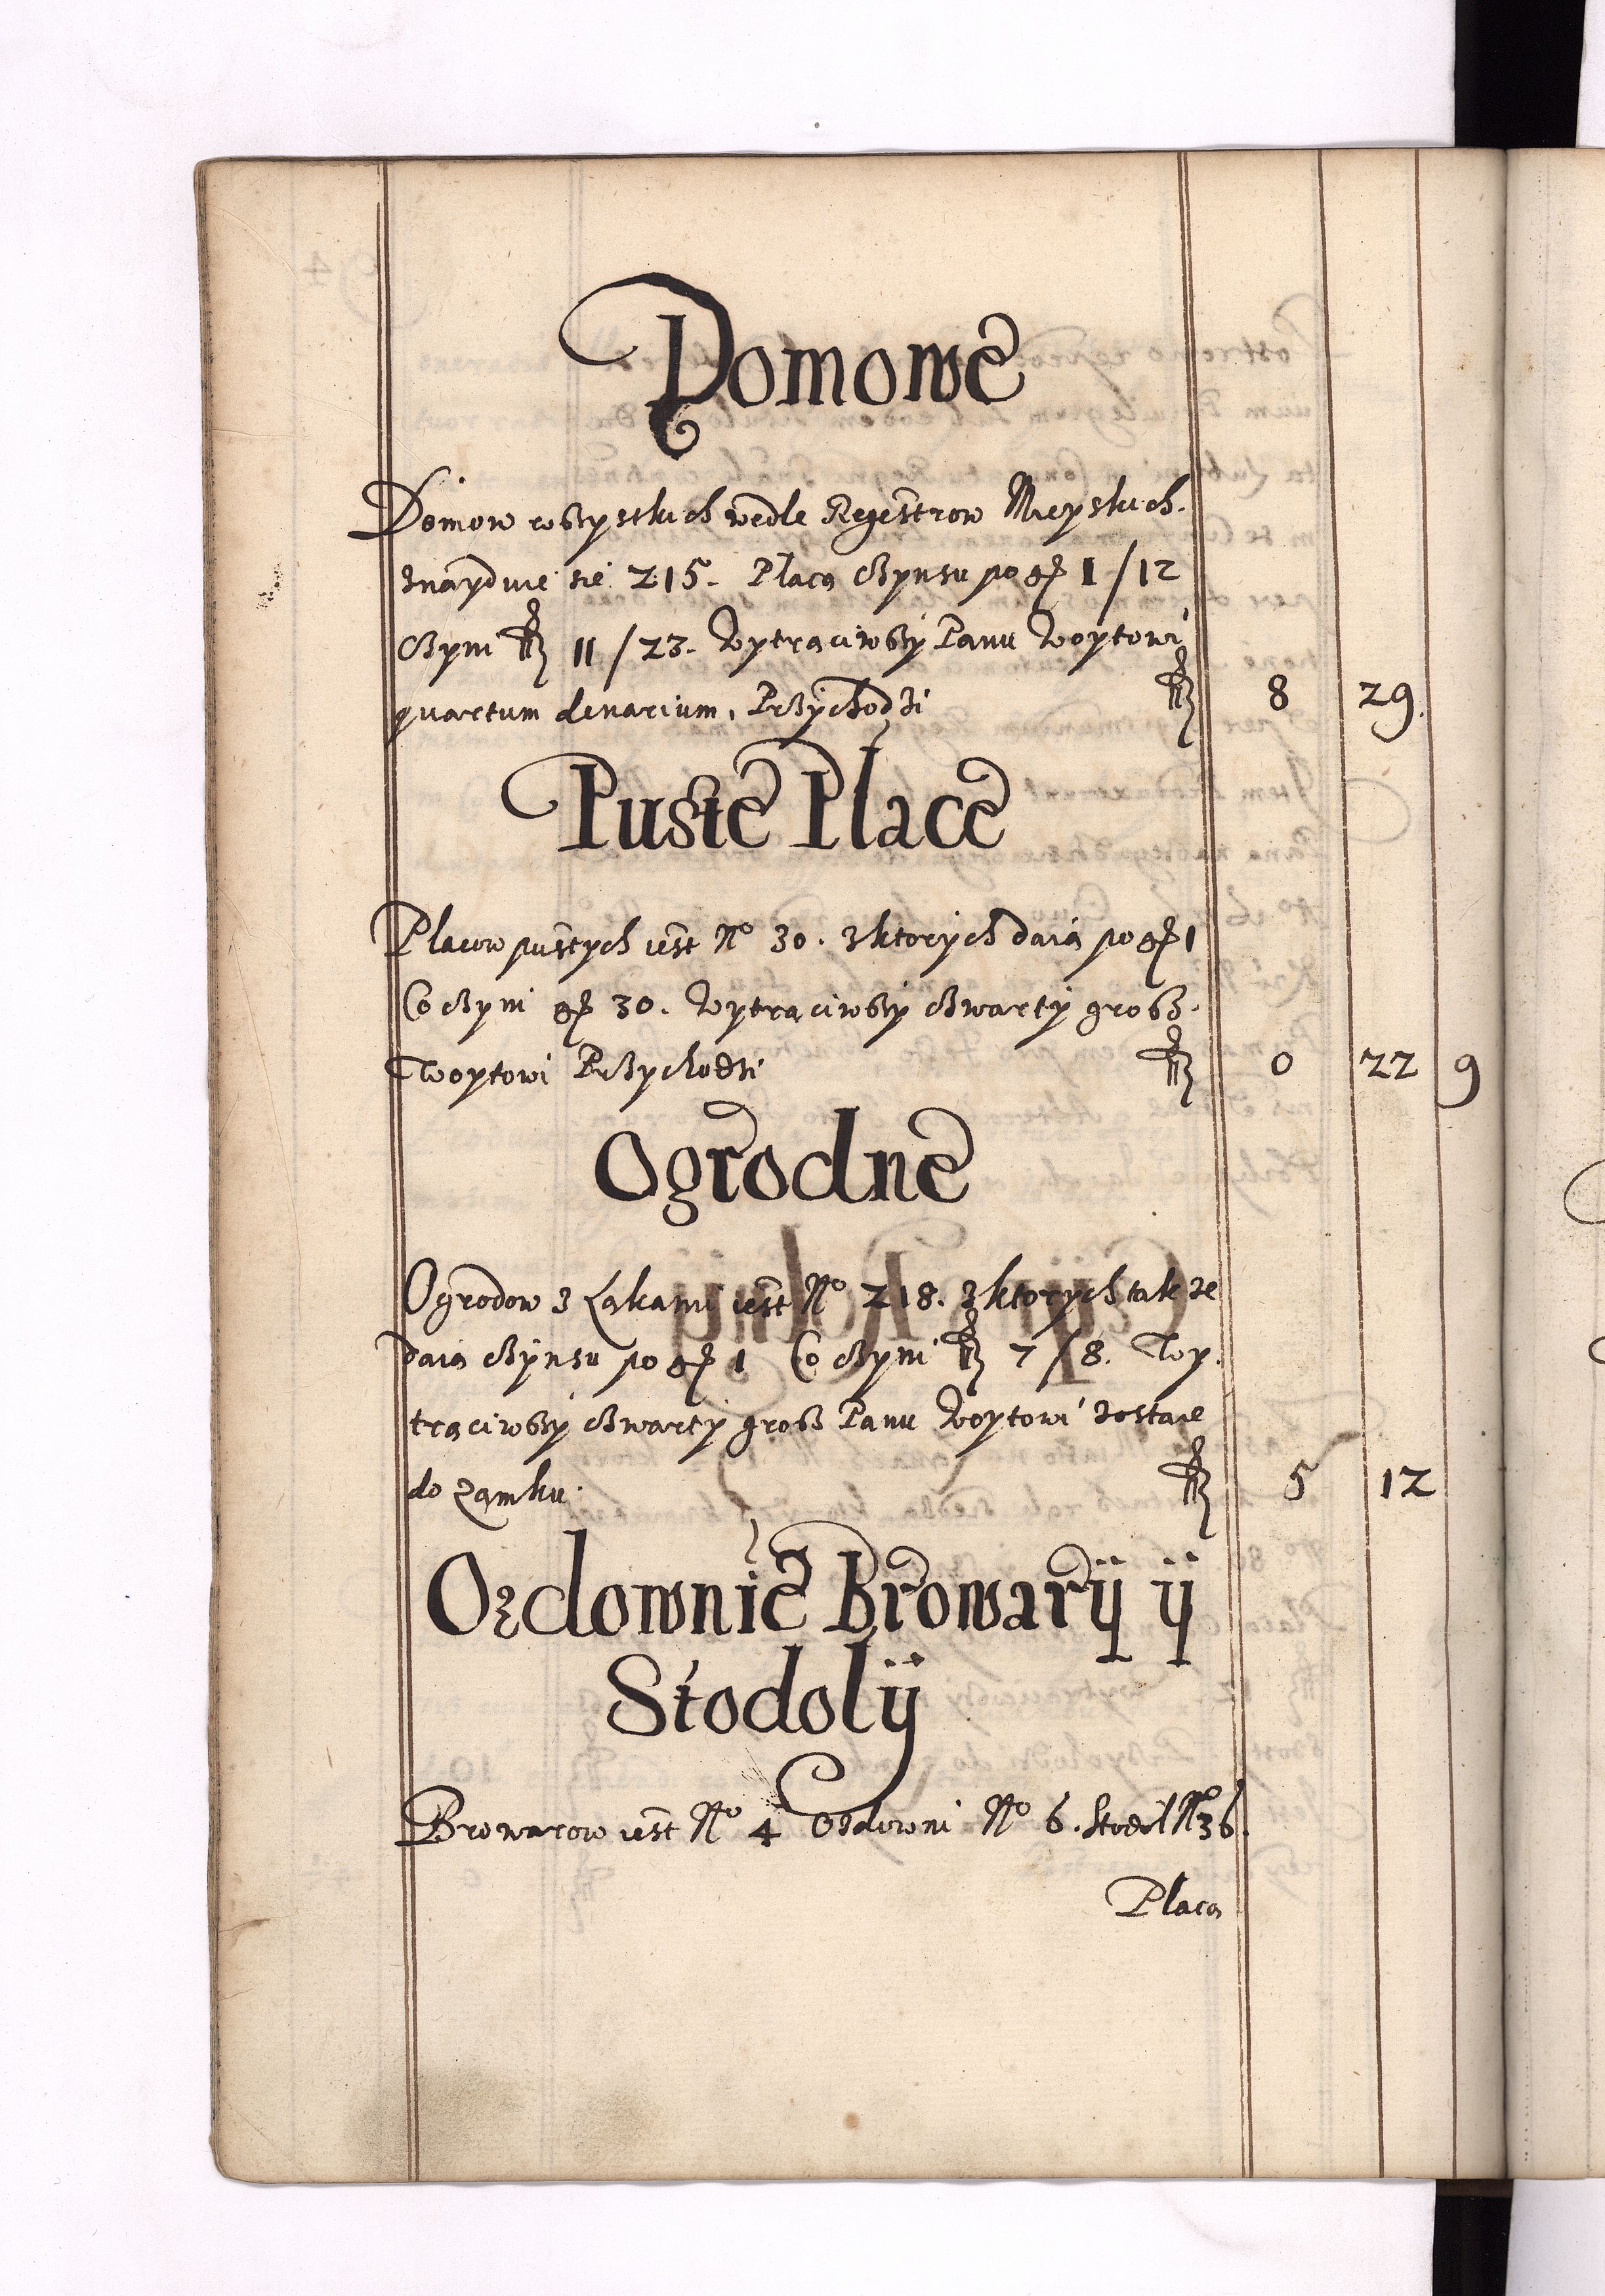 Domowe
Domow wszystkich wedle Regestrow Mieyskich.
znayduie sie 215. Placą Czynsu po gr 1/12
Czyni fl 11/23. Wytrąciwszy Panu Woytowi
quartum denarium, Przychodzi fl 8 29.
Puste Place
Placow pustych iest No 30. z ktorych daią po gr 1
Co czyni gr 30. Wytrąciwszy czwarty grosz.
Woytowi Przychodzi fl 0 22 9
Ogrodne
Ogrodow z Łąkami iest No 218. z ktorych takze
daią czynsu po gr 1 Co czyni fl 7/8. Wy
trąciwszy czwarty grosz Panu Woytowi zostaie
do Zamku. fl 5 12
Ozdownie Browarÿ ÿ
Stodolÿ
Browarow iest No 4 Ozdowni No 6. Stodol No 36.
Placą